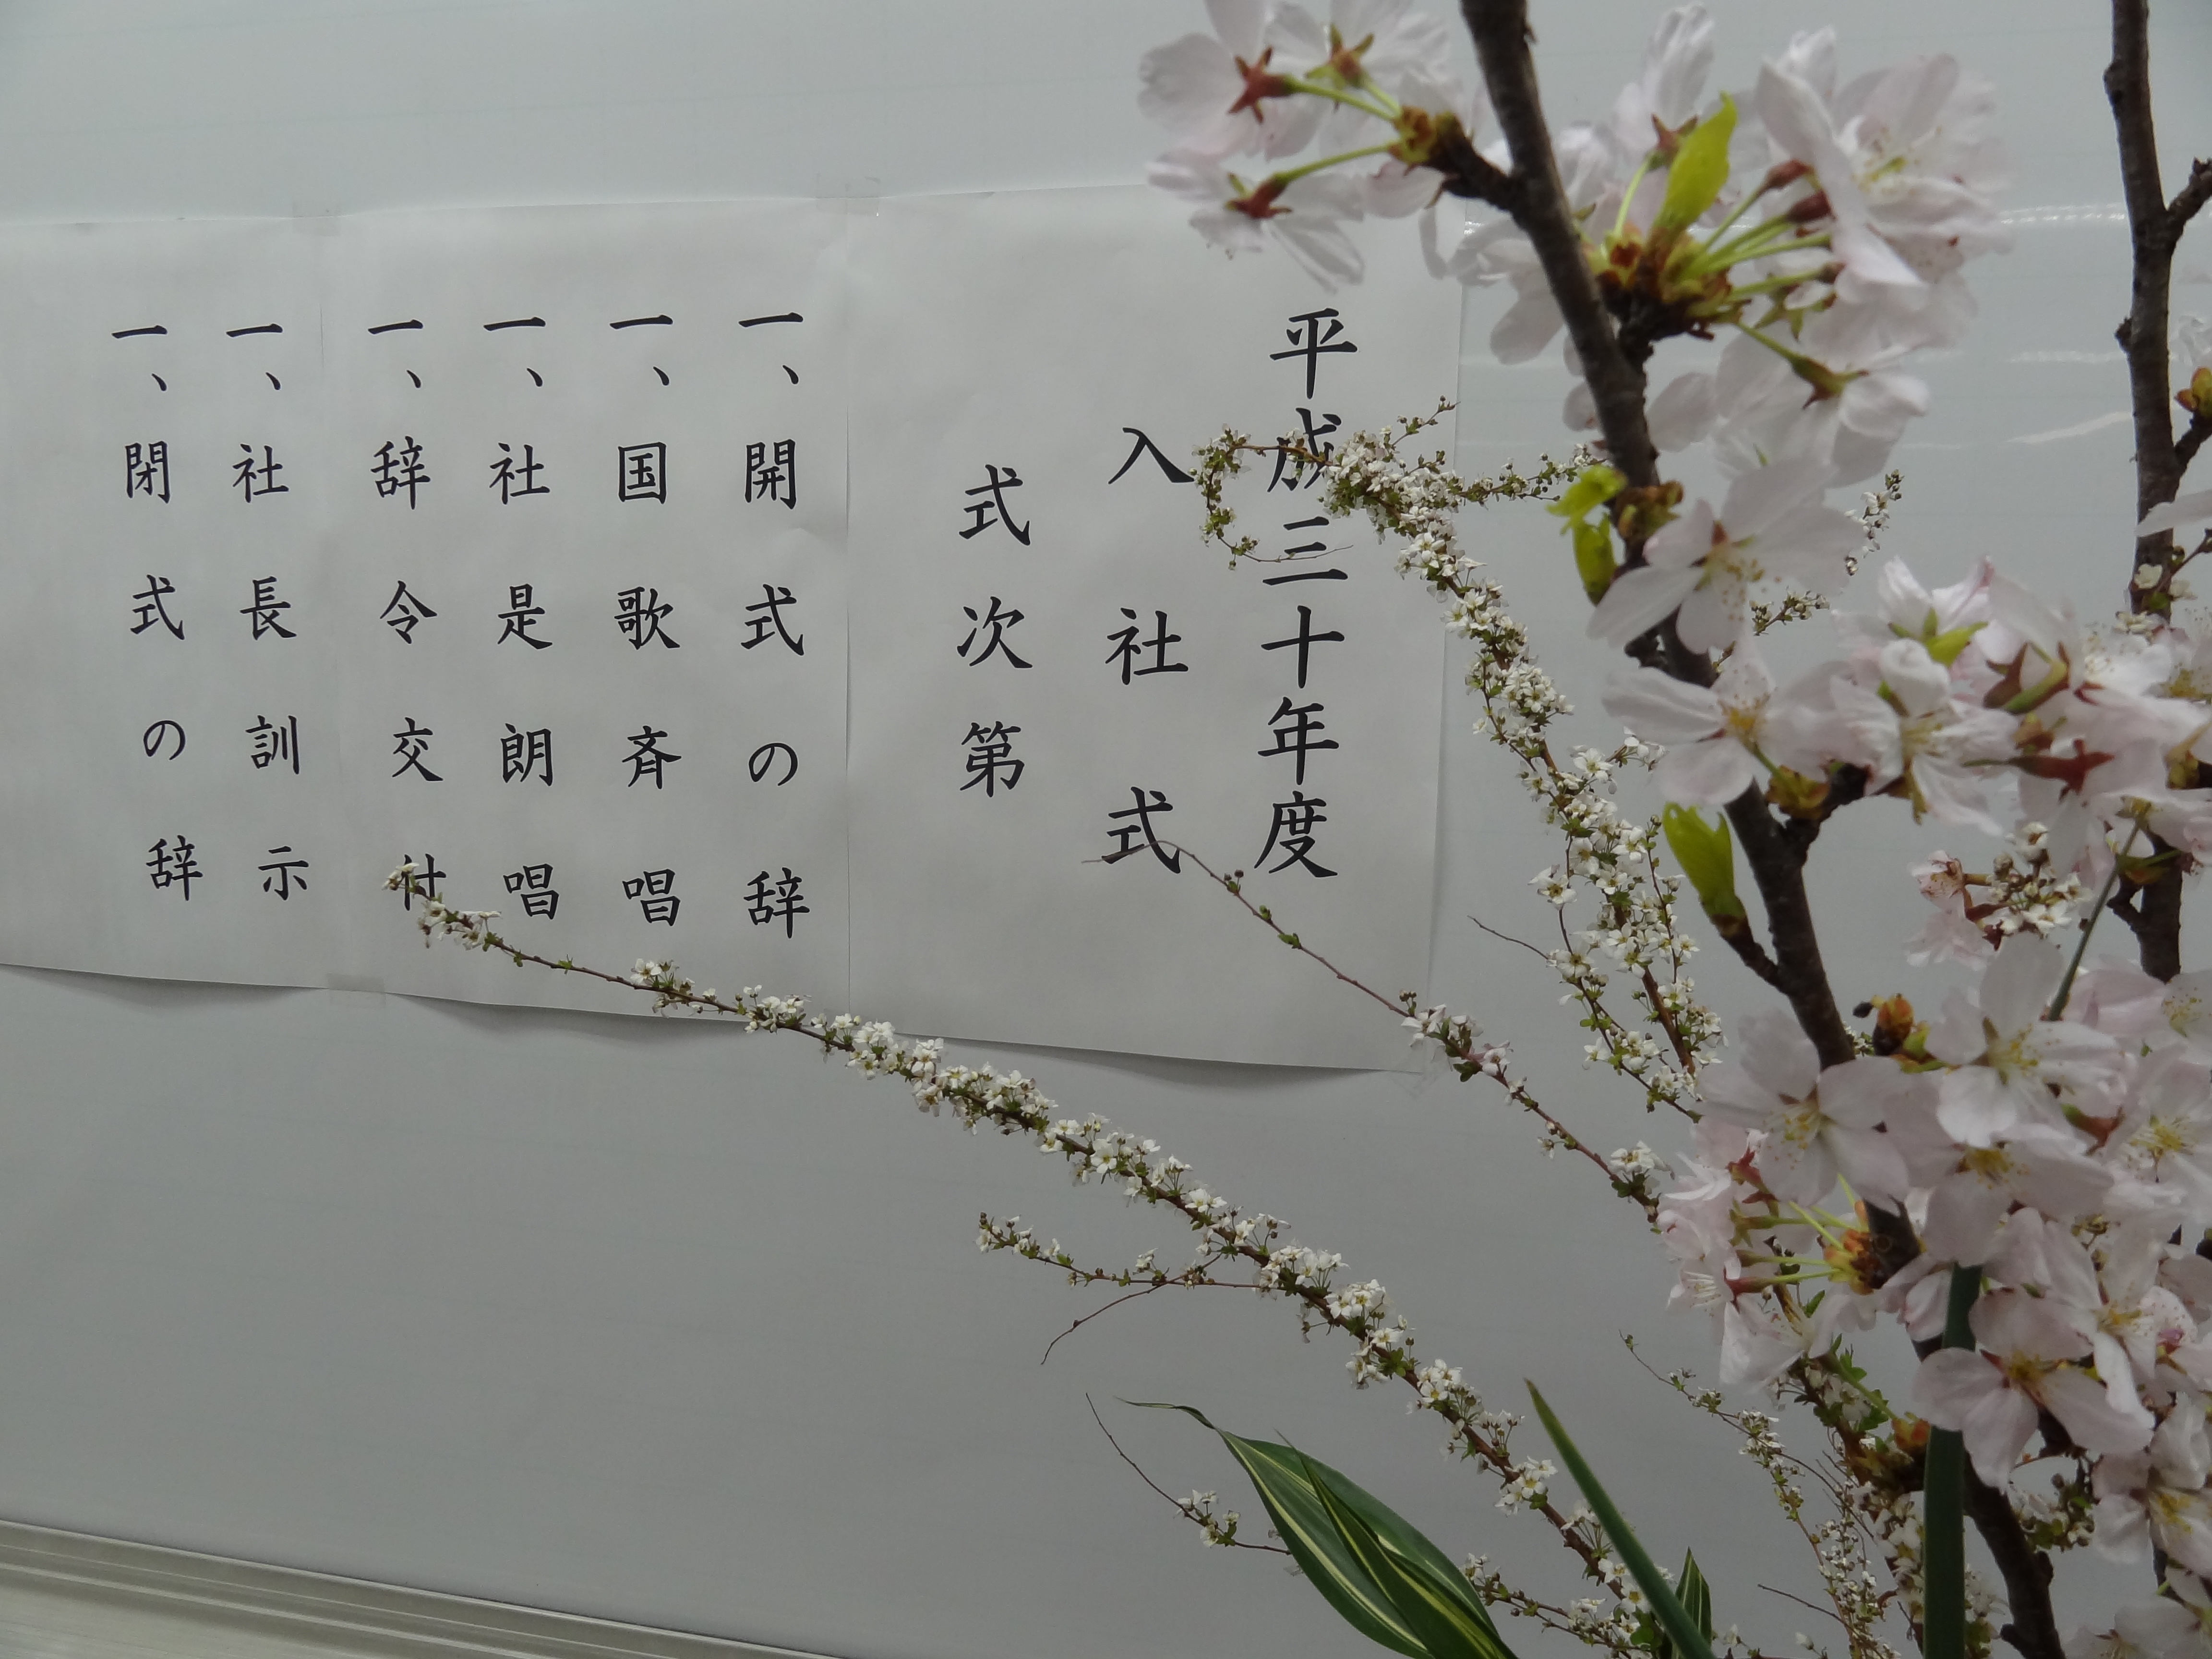 平成三十年度
入社式
式次第
一、開式の辞
一、国歌斉唱
一、社是朗唱
一、辞令交付
一、社長訓示
一、閉式の辞